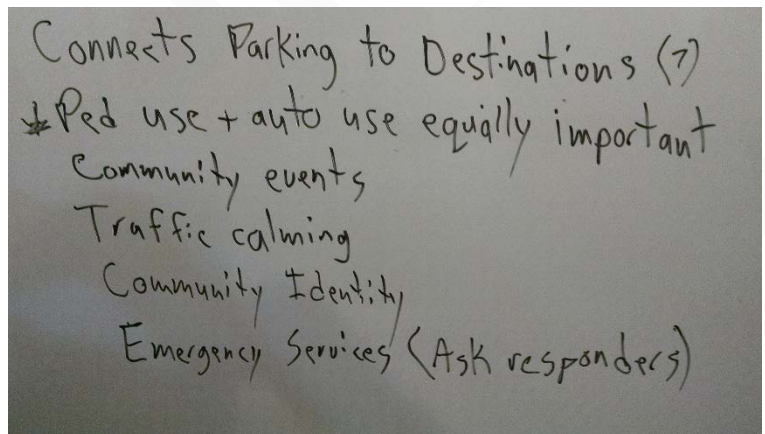 Connects Parking to Destinations (7)
* Ped use + auto use equally important
Community events
Traffic calming
Community Identity
Emergency Services (Ask responders)